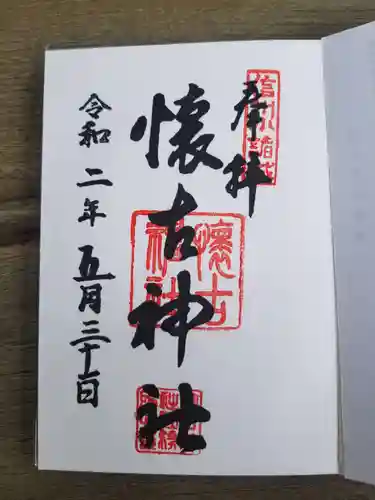 奉拝
懐古神社
令和二年五月三十日
懐古
神社